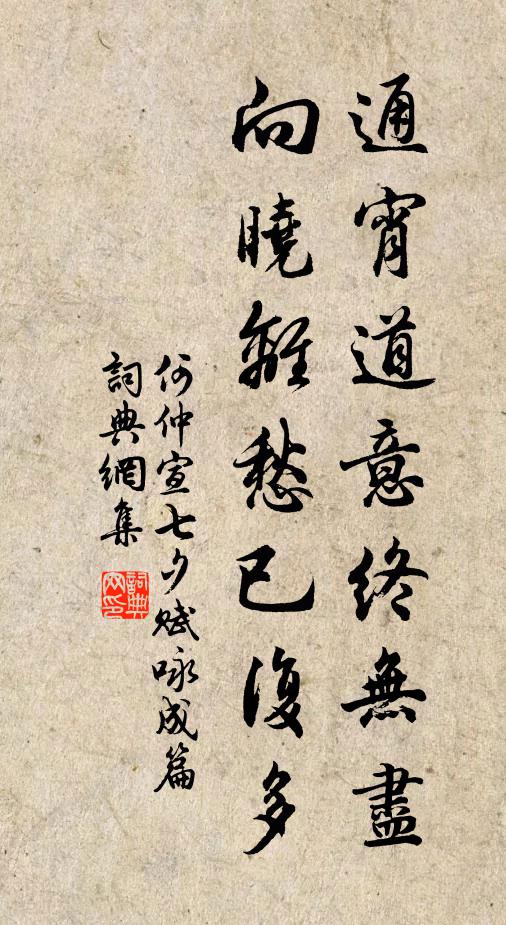 通宵道意終無盡
向曉離愁已復多
何仲宣七夕賦咏成篇
詞典網集
詞典网印